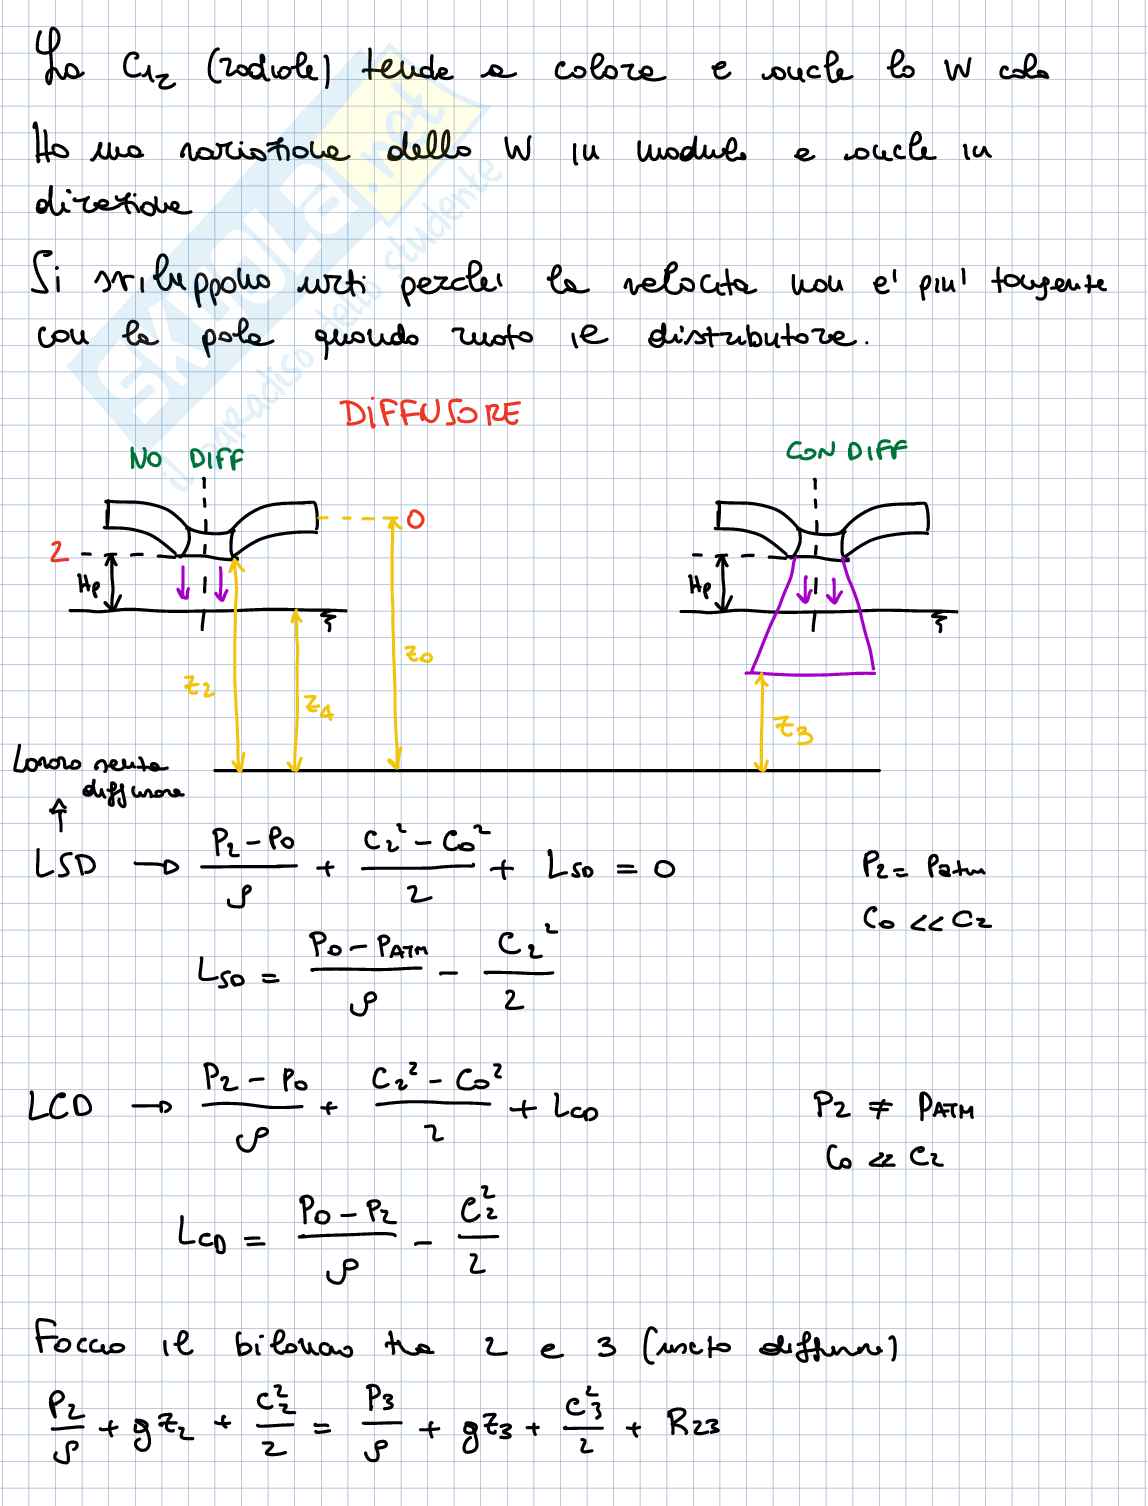 La C1z (radiale) tende a calare e anche la W cala
Ho una variazione della W in modulo e anche in
direzione
Si sviluppano urti perché la velocità non e' piu' tangente
con la pala quando ruoto il distributore.
DIFFUSORE
NO DIFF
CON DIFF
0
2
Hp
Hp
z2
z4
z0
z3
Lavoro senza
diffusore
LSD → (P2 - P0)/ρ + (C2² - C0²)/2 + LSD = 0
P2 = Patm
C0 << C2
LSD = (P0 - PATM)/ρ - C2²/2
LCD → (P2 - P0)/ρ + (C2² - C0²)/2 + LCD
P2 ≠ PATM
C0 << C2
LCD = (P0 - P2)/ρ - C2²/2
Faccio il bilancio tra 2 e 3 (uscita diffusore)
P2/ρ + gz2 + C2²/2 = P3/ρ + gz3 + C3²/2 + R23
SKUOLA.net
il paradiso dello studente